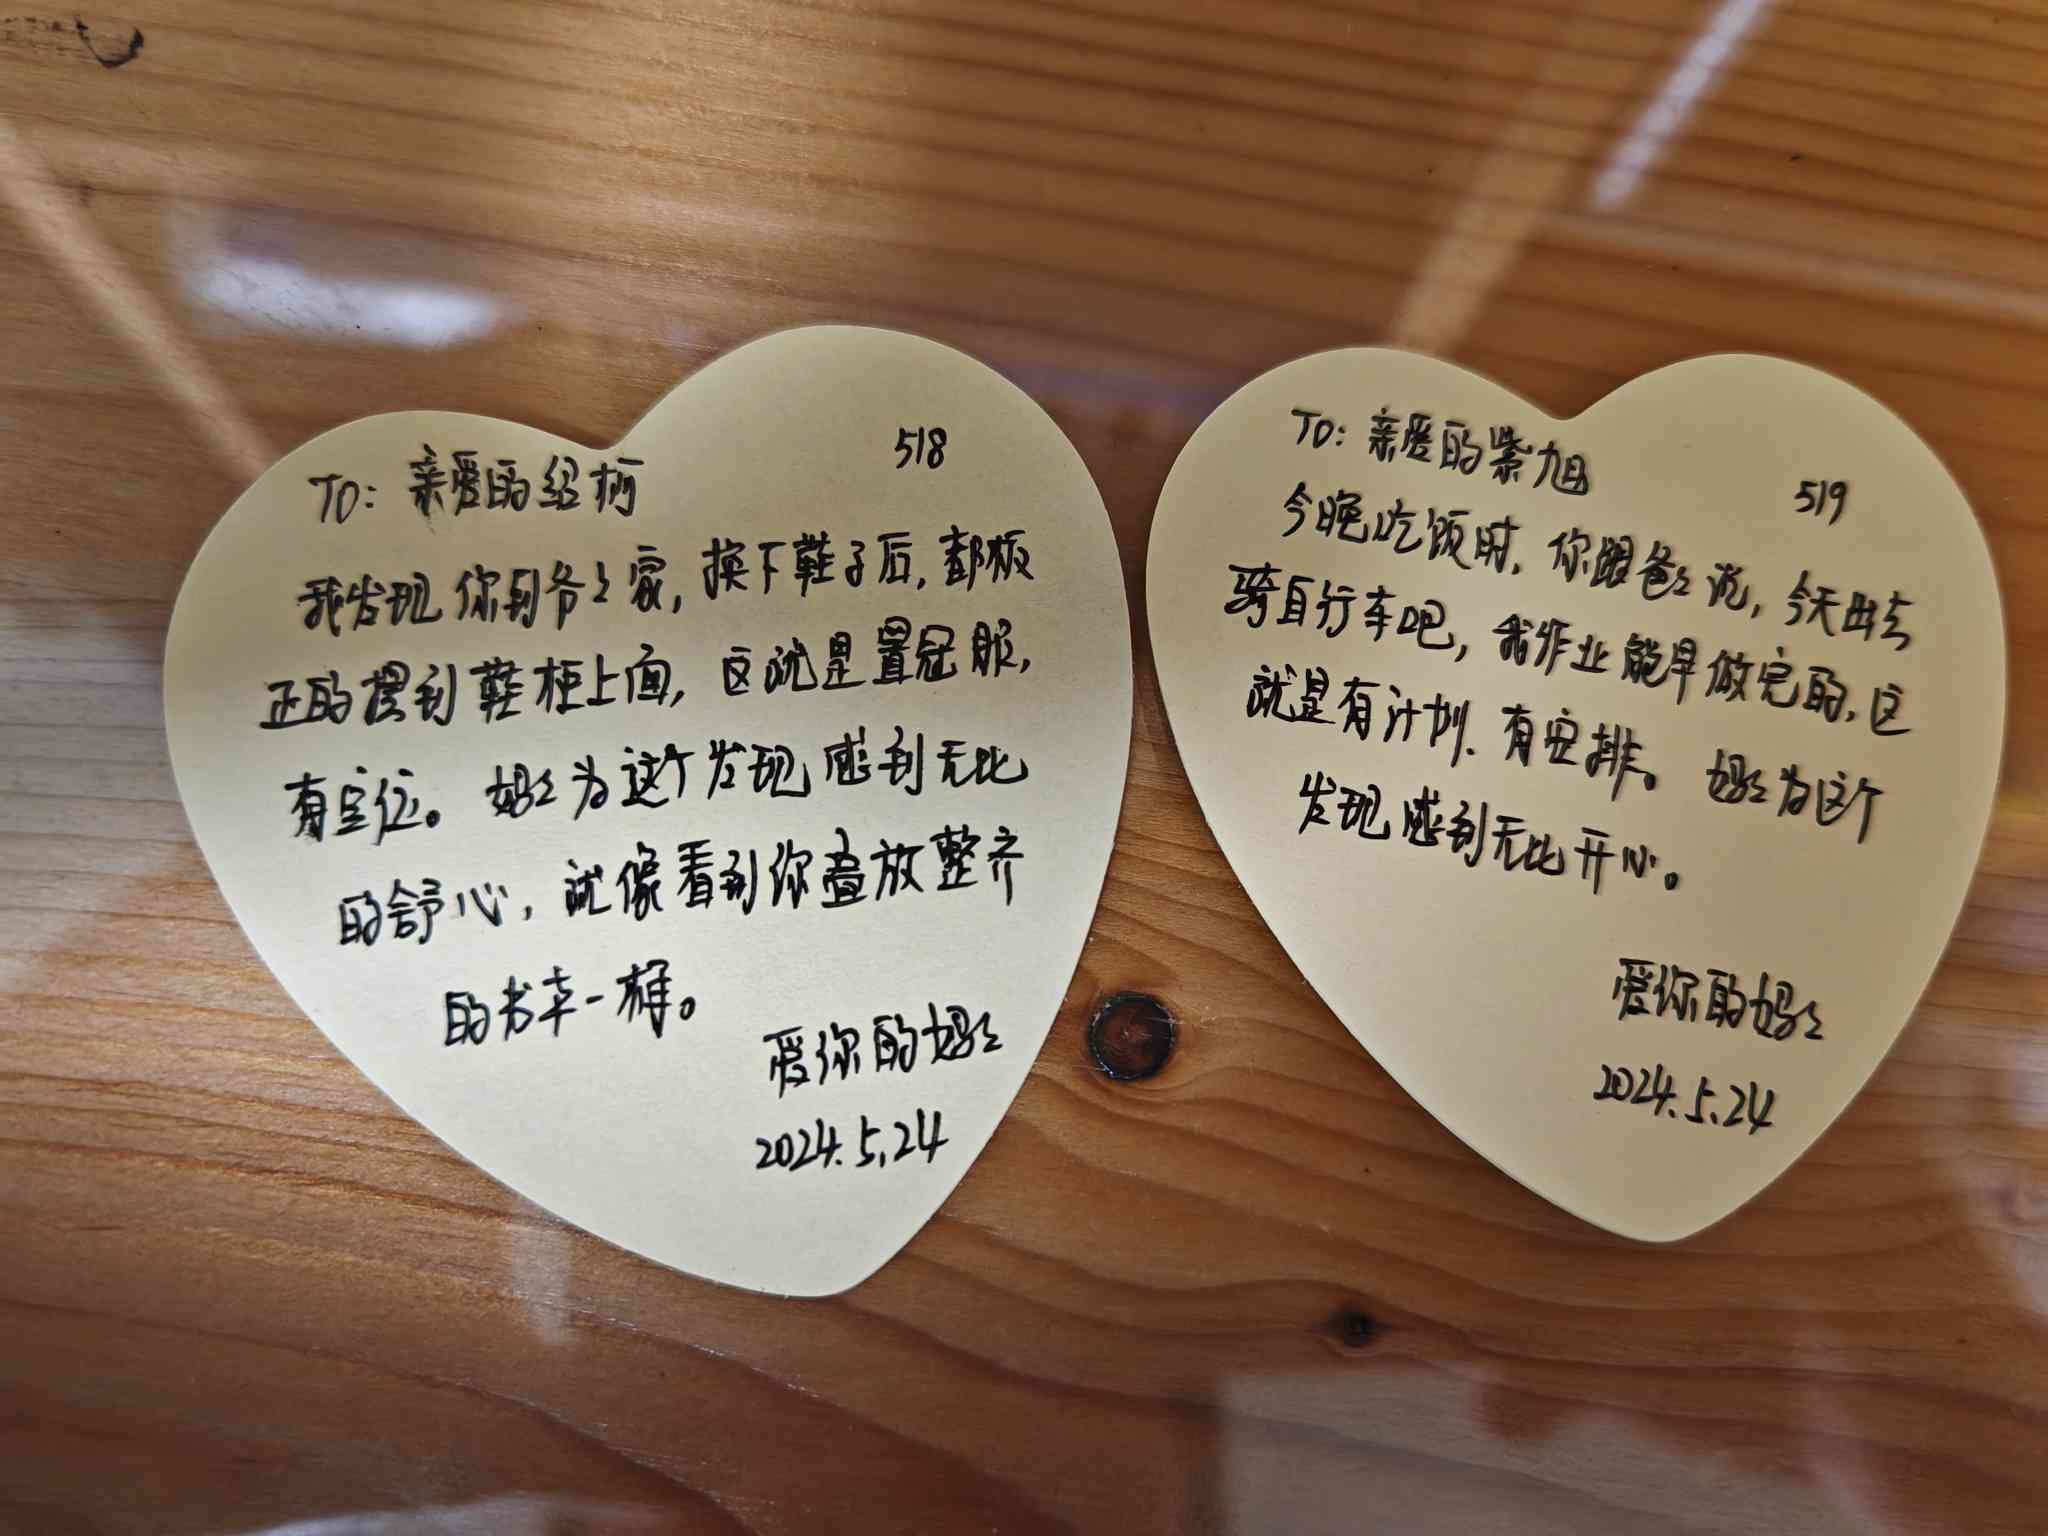 518
TO: 亲爱的绍柄
我发现你到爷々家,换下鞋子后,都板
正的摆到鞋柜上面,这就是置冠服,
有定位。妈々为这个发现感到无比
的舒心,就像看到你叠放整齐
的书本一样。
爱你的妈々
2024.5.24
TO: 亲爱的紫旭
519
今晚吃饭时,你跟爸々说,今天出去
骑自行车吧,我作业能早做完的,这
就是有计划、有安排。妈々为这个
发现感到无比开心。
爱你的妈々
2024.5.24